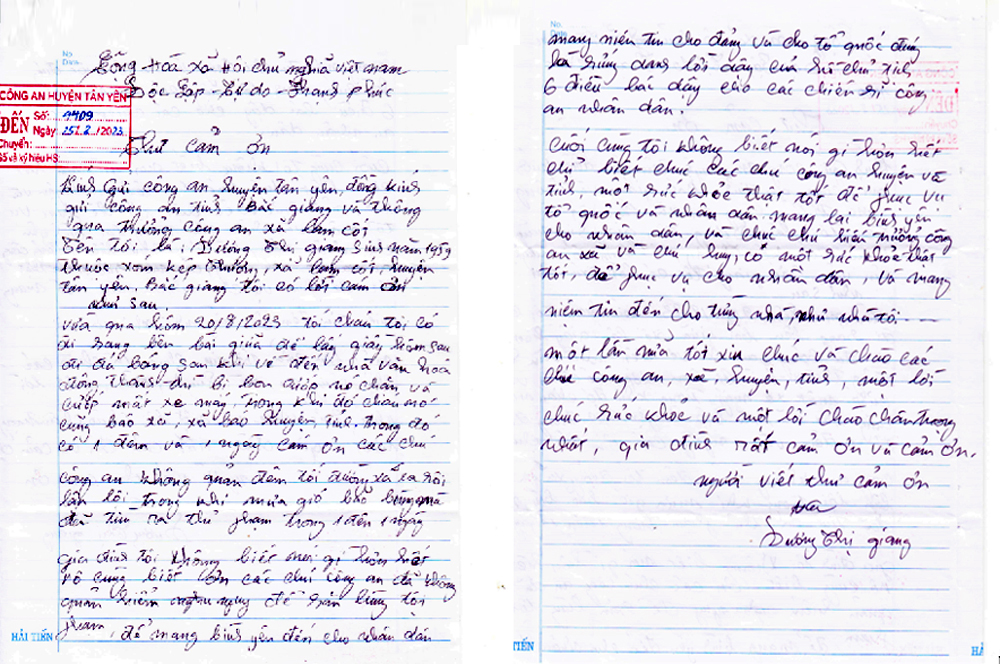 No.
Date
Cộng Hòa xã Hội chủ nghĩa việt nam
Độc Lập - Tự do - Hạnh Phúc
CÔNG AN HUYỆN TÂN YÊN
ĐẾN
Số: 1409
Ngày 25/.../2023
Chuyển:
Số và ký hiệu HS
Thư cảm ơn
Kính gửi công an huyện tân yên, đồng kính
gửi công an tỉnh Bắc giang và thông
qua trưởng công an xã lam cốt
Tên tôi là: Dương Thị giang Sinh năm 1959
thuộc xóm kép thượng, xã lam cốt, huyện
tân yên. Bắc giang tôi có lời cảm ơn
như sau
vừa qua hôm 20/8/2023 tối cháu tôi có
đi sang bên bãi giữa để lấy giày hôm sau
đi đá bóng sau khi về đến nhà văn hóa
đông thành thì bị bọn cướp nó chặn, và
cướp mất xe máy trong khi đó cháu nó
cũng báo xã, xã báo huyện, tỉnh. trong đó
có 1 đêm và 1 ngày cảm ơn các chú
công an không quản đêm tối đường xá xa xôi
lặn lội trong khi mưa gió bão bùng mà
đã tìm ra thủ phạm trong 1 đên 1 ngày
Gia đình tôi không biết nói gì hơn hết
vô cùng biết ơn các chú công an đã không
quản hiểm nguy để săn lùng tội
phạm, để mang bình yên đến cho nhân dân
HẢI TIẾN
No.
Date
mang niên tin cho đảng và cho tổ quốc đúng
là xứng danh lời dậy của hồ chủ tịch
6 điều bác dậy cho các chiến sĩ công
an nhân dân.
Cuối cùng tôi không biết nói gì hơn hết
chỉ biết chúc các chú công an huyện và
tỉnh, một sức khỏe thật tốt để phục vụ
tổ quốc và nhân dân mang lại bình yên
cho nhân dân, và chúc chú hiếu trưởng công
an xã và chú huy, có một sức khỏe thật
tốt, để phục vụ cho nhân dân, và mang
niệm tin đến cho từng nhà, như nhà tôi
một lần nữa tôi xin chúc và chào các
chú công an, xã, huyện, tỉnh, một lời
chúc sức khỏe và một lời chào chân trọng
nhất, gia đình rất cảm ơn và cảm ơn.
người viết thư cảm ơn
Dương Thị giang
TIẾN
HẢ